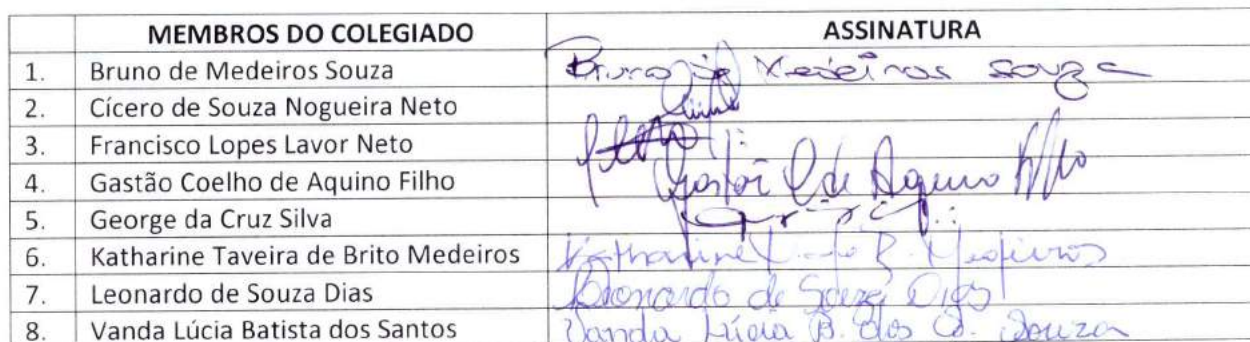 MEMBROS DO COLEGIADO ASSINATURA
1. Bruno de Medeiros Souza Bruno de Medeiros Souza
2. Cícero de Souza Nogueira Neto
3. Francisco Lopes Lavor Neto
4. Gastão Coelho de Aquino Filho Gastão C de Aquino Filho
5. George da Cruz Silva
6. Katharine Taveira de Brito Medeiros Katharine B. Medeiros
7. Leonardo de Souza Dias Leonardo de Souza Dias
8. Vanda Lúcia Batista dos Santos Vanda Lúcia B. dos S. Souza